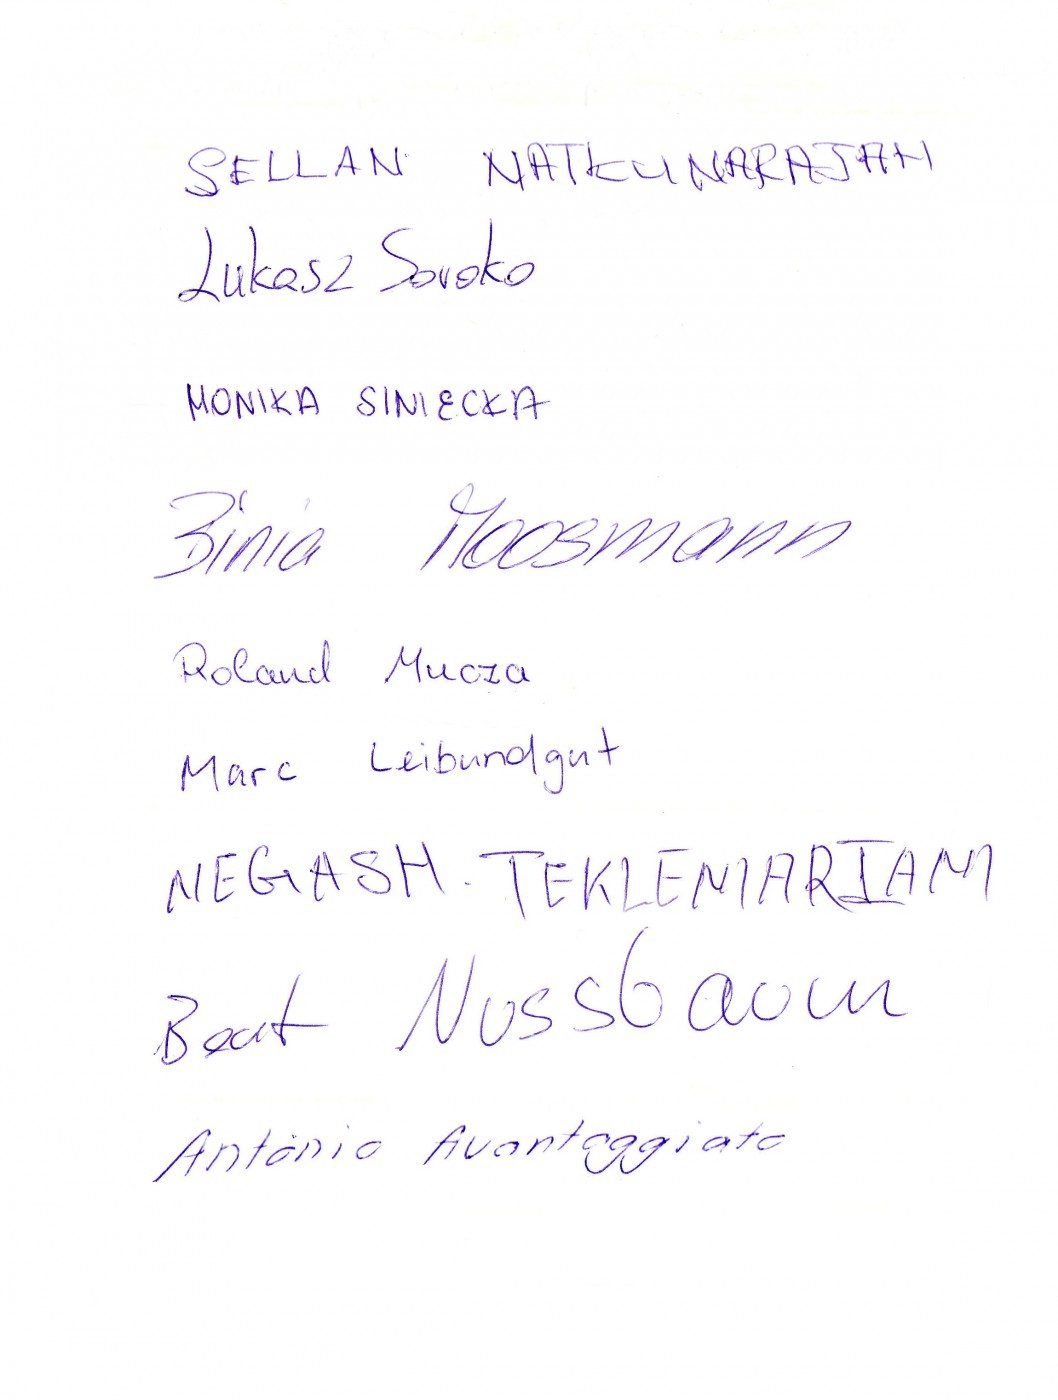 SELLAN NATKUNARAJAH
Lukasz Sovoko
MONIKA SINIECKA
Binia Moosmann
Roland Mucza
Marc Leibundgut
NEGASH. TEKLEMARIAM
Beat Nussbaum
Antonio Avantaggiato